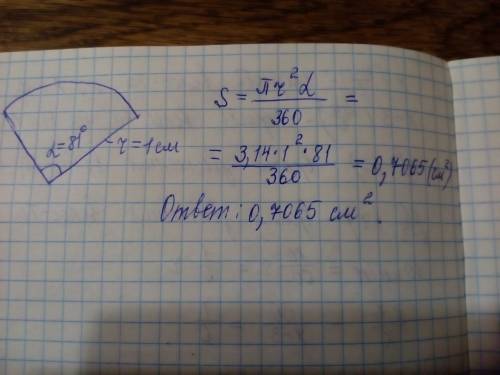 α=81°
r=1см
S = πr²α/360 =
= 3,14·1²·81/360 = 0,7065 (см²)
Ответ: 0,7065 см².